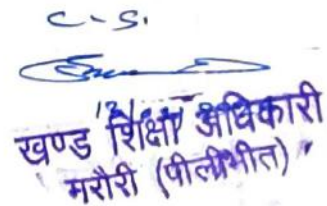 C-S.
खण्ड शिक्षा अधिकारी
मरौरी (पीलीभीत)